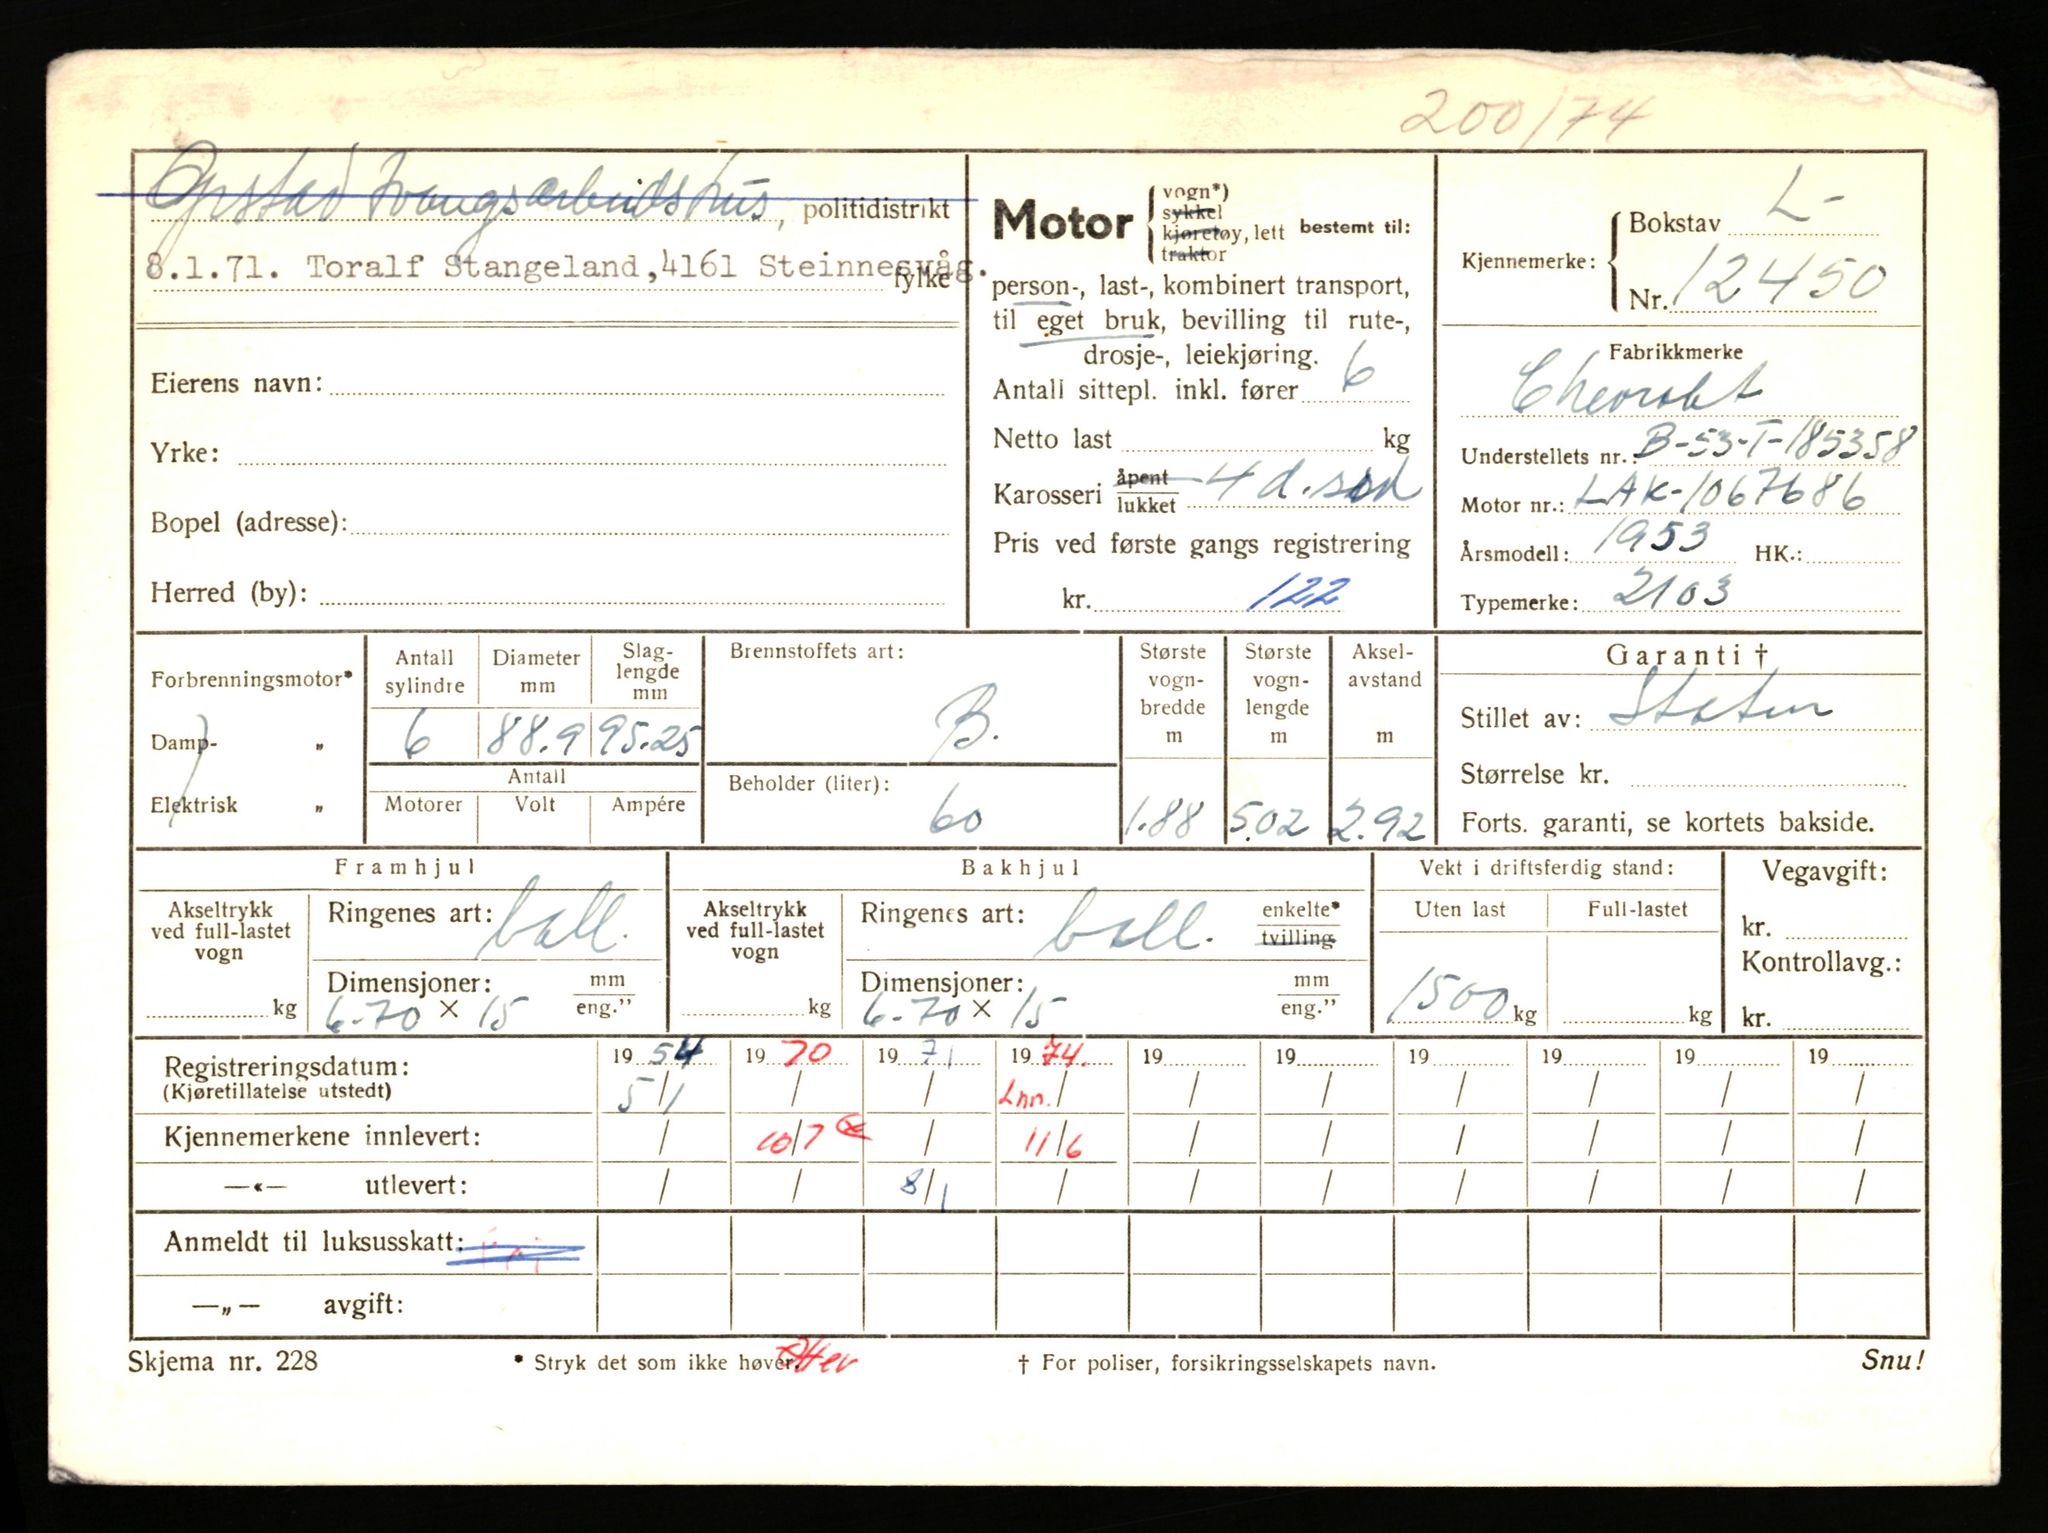 200/74
Opstad tvangsarbeidshus, politidistrikt
8.1.71. Toralf Stangeland, 4161 Steinnesvåg. fylke
Eierens navn:
Yrke:
Bopel (adresse):
Herred (by):
Motor vogn*) sykkel kjøretøy, lett traktor bestemt til:
person-, last-, kombinert transport,
til eget bruk, bevilling til rute-,
drosje-, leiekjøring.
Antall sittepl. inkl. fører 6
Netto last kg
Karosseri åpent lukket 4 d.
Pris ved første gangs registrering
kr. 122
Kjennemerke: Bokstav L-
Nr. 12450
Fabrikkmerke
Chevrolet
Understellets nr.: B-53-T-185358
Motor nr.: LAK-1067686
Årsmodell: 1953 HK.:
Typemerke: 2103
Forbrenningsmotor*
Damp- „
Elektrisk „
Antall sylindre
Diameter mm
Slag-lengde mm
6 88.9 95.25
Antall
Motorer Volt Ampére
Brennstoffets art:
B.
Beholder (liter):
60
Største vogn-bredde m
1.88
Største vogn-lengde m
5.02
Aksel-avstand m
2.92
Garanti †
Stillet av: Staten
Størrelse kr.
Forts. garanti, se kortets bakside.
Framhjul
Akseltrykk ved full-lastet vogn
kg
Ringenes art: ball.
Dimensjoner: mm
6-70 × 15 eng.”
Bakhjul
Akseltrykk ved full-lastet vogn
kg
Ringenes art: ball. enkelte* tvilling
Dimensjoner: mm
6-70 × 15 eng.”
Vekt i driftsferdig stand:
Uten last Full-lastet
1500 kg kg
Vegavgift:
kr.
Kontrollavg.:
kr.
Registreringsdatum: 19 54 19 70 19 71 19 74. 19 19 19 19 19 19
(Kjøretillatelse utstedt) 5/1 / / Lnn. / / / / / / /
Kjennemerkene innlevert: / 10/7 / 11/6 / / / / / /
—«— utlevert: / / 8/1 / / / / / / /
Anmeldt til luksusskatt:
—„— avgift:
Skjema nr. 228 * Stryk det som ikke høver. † For poliser, forsikringsselskapets navn. Snu!